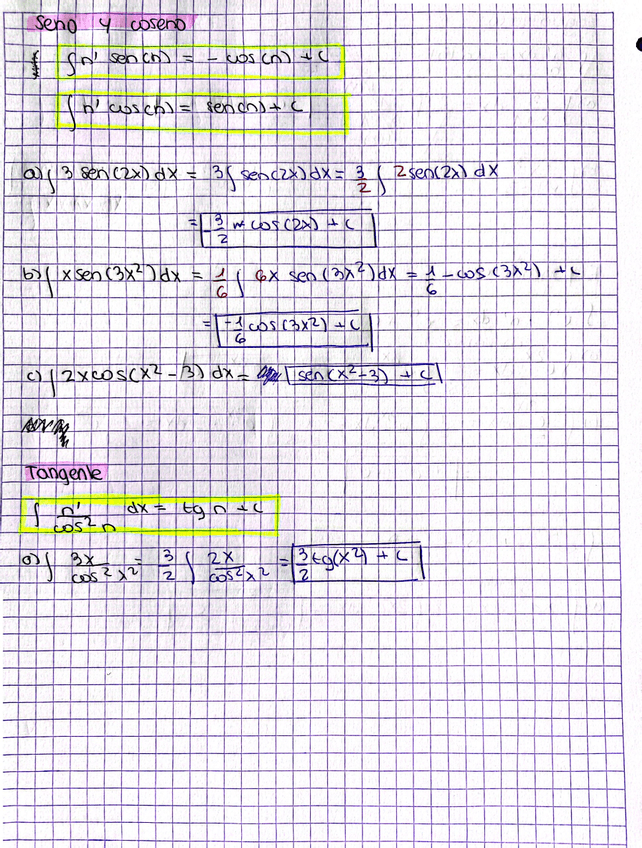 Seno y coseno
∫n' sen(n) = - cos(n) + C
∫n' cos(n) = sen(n) + C
a) ∫3 sen(2x) dx = 3∫sen(2x) dx = 3/2 ∫ 2 sen(2x) dx
= -3/2 cos(2x) + C
b) ∫x sen(3x²) dx = 1/6 ∫ 6x sen(3x²) dx = 1/6 - cos(3x²) + C
= -1/6 cos(3x²) + C
c) ∫2x cos(x²-3) dx = sen(x²-3) + C
Tangente
∫ n'/cos² n dx = tg n + C
a) ∫ 3x/cos² x² = 3/2 ∫ 2x/cos² x² = 3/2 tg(x²) + C